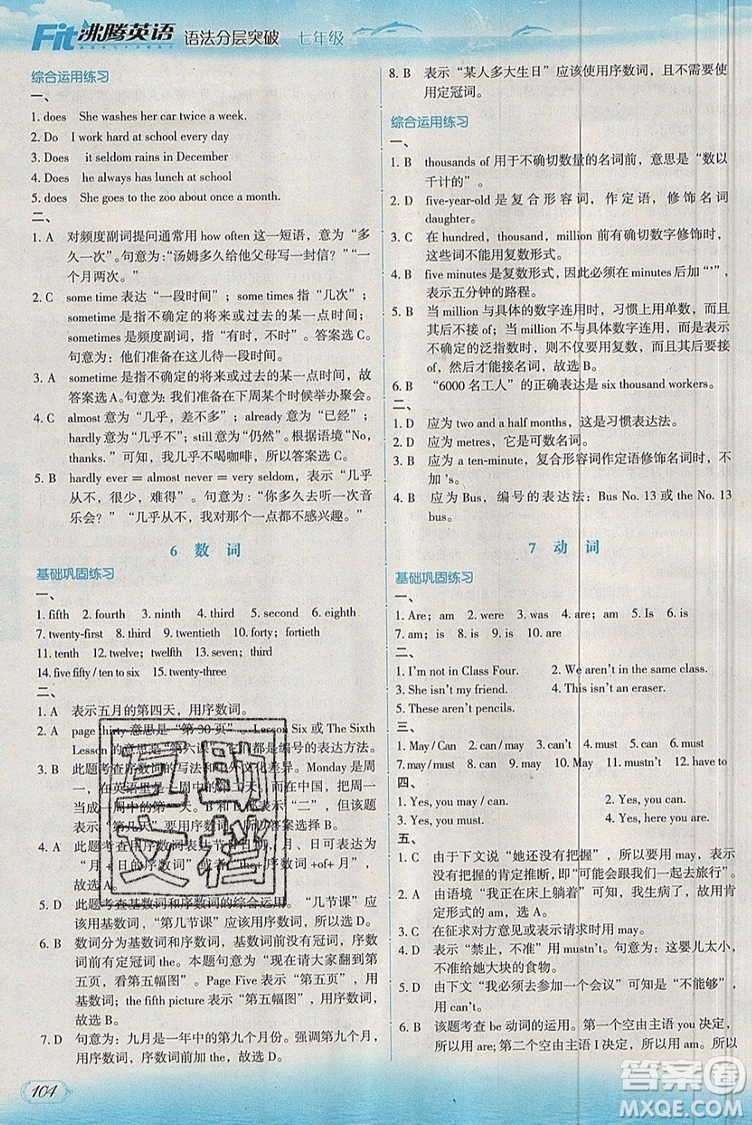 Fit沸腾英语 语法分层突破 七年级
综合运用练习
一、
1. does She washes her car twice a week.
2. Do I work hard at school every day
3. Does it seldom rains in December
4. Does he always has lunch at school
5. does She goes to the zoo about once a month.
二、
1. A 对频度副词提问通常用 how often 这一短语，意为“多
久一次”。句意为：“汤姆多久给他父母写一封信？”“一
个月两次。”
2. C some time 表达“一段时间”；some times 指“几次”；
sometime 是指不确定的将来或过去的某一点时间；
sometimes 是频度副词，指“有时，不时”。答案选 C。
句意为：他们准备在这儿待一段时间。
3. A sometime 是指不确定的将来或过去的某一点时间，故
答案选 A。句意为：我们准备在下周某个时候举办聚会。
4. C almost 意为“几乎，差不多”；already 意为“已经”；
hardly 意为“几乎不”；still 意为“仍然”。根据语境“No,
thanks.”可知，我几乎不喝咖啡，所以答案选 C。
5. B hardly ever = almost never = very seldom，表示“几乎
从不，很少，难得”。句意为：“你多久去听一次音
乐会？”“几乎从不，我对音乐一点都不感兴趣。”
6 数 词
基础巩固练习
一、
1. fifth 2. fourth 3. ninth 4. third 5. second 6. eighth
7. twenty-first 8. third 9. third 10. forty; fortieth
11. tenth 12. twelve; twelfth 13. hundred
14. five fifty / ten to six 15. twenty-three
二、
1. A 表示五月的第四天，用序数词。
2. A page thirty 意思是“第 30 页”，Lesson Six 或 The Sixth
Lesson 的意思是“第六课”，都是编号的表达方法。
3. B 此题考查序数词的写法和中外文化差异。Monday 是周
一，在英语里是一周中的第二天；而在中国，把周一
当成一周中的第一天。B 和 D 都表示“二”，但该题
表示“第几天”要用序数词，所以答案选择 B。
4. A 此题考查用序数词表达年、月、日。月、日可表达为
“月 + 日的序数词”或者“the + 日的序数词 +of+ 月”，
故选 A。
5. D 此题考查基数词和序数词的综合运用。“几节课”应
该用基数词，“第几节课”应该用序数词，所以选 D。
6. B 数词分为基数词和序数词，基数词前没有冠词，序数
词前有定冠词 the。本题句意为“请大家翻到第
五页，看看第五幅图”。Page Five 表示“第五页”，用基
数词；the fifth picture 表示“第五幅图”，用序数词。
7. D 句意为：九月是一年中的第九个月份。强调第九个月
用序数词，序数词前加 the，故选 D。
104
8. B 表示“某人多大生日”应该使用序数词，且不需要使
用定冠词。
综合运用练习
一、
1. B thousands of 用于不确切数量的名词前，意思是“数以
千计的”。
2. D five-year-old 是复合形容词，作定语，修饰名词
daughter。
3. C 在 hundred，thousand，million 前有确切数字修饰时，
这些词不能用复数形式。
4. B five minutes 是复数形式，因此必须在 minutes 后加“’”，
表示五分钟的路程。
5. B 当 million 与具体的数字连用时，习惯上用单数，而且
其后不接 of；当 million 不与数字连用，而是表示不
确定的泛指数时，则不用单数，而用复数，并且后加
of，然后才能接名词，故选 B。
6. B “6000 名工人”的正确表达是 six thousand workers。
二、
1. D 应为 two and a half months，这是习惯表达法。
2. D 应为 metres，它是可数名词。
3. B 应为 a ten-minute，复合形容词作定语修饰名词，不
加 ’s。
4. B 应为 Bus，编号的表达法：Bus No. 13 或 the No. 13
Bus。
7 动 词
基础巩固练习
一、
1. Are；am 2. are 3. are 4. am 5. are 6. Is
7. am；is 8. are；are 9. is 10. are
二、
1. I'm not in Class Four. 2. We aren't in the same class.
3. She isn't my friend. 4. This isn't an eraser.
5. These aren't pencils.
三、
1. May / Can 2. can / may 3. can 4. mustn't 5. must
6. can / may 7. can 8. may 9. can 10. must 11. must 12. have to
四、
1. Yes, you may / can. 2. No, you mustn't.
3. Yes, you must. 4. Yes, here you are.
五、
1. C 由于下文说“她还没有把握”，所以要用 may，表示
没有把握的肯定推断，即“可能会和我们一起去旅行”。
2. A 由语境“我正在床上躺着”可知，我病了，故用肯
定形式的 am，选 A。
3. C 在征求对方意见或表示请求时，应用 may。
4. D 表示“禁止，不准”用 mustn't。句意为：这婴儿太小，
不准喂给她大块的食物。
5. C 由下文的“我必须去参加一个会议”可知是“不能够”，
用 can't。
6. B 该题考查 be 动词的运用。第一个空由主语 you 决定，
所以用 are；第二个空由主语 I 决定，所以用 am；第
互助文档
答案圈
MXQE.COM